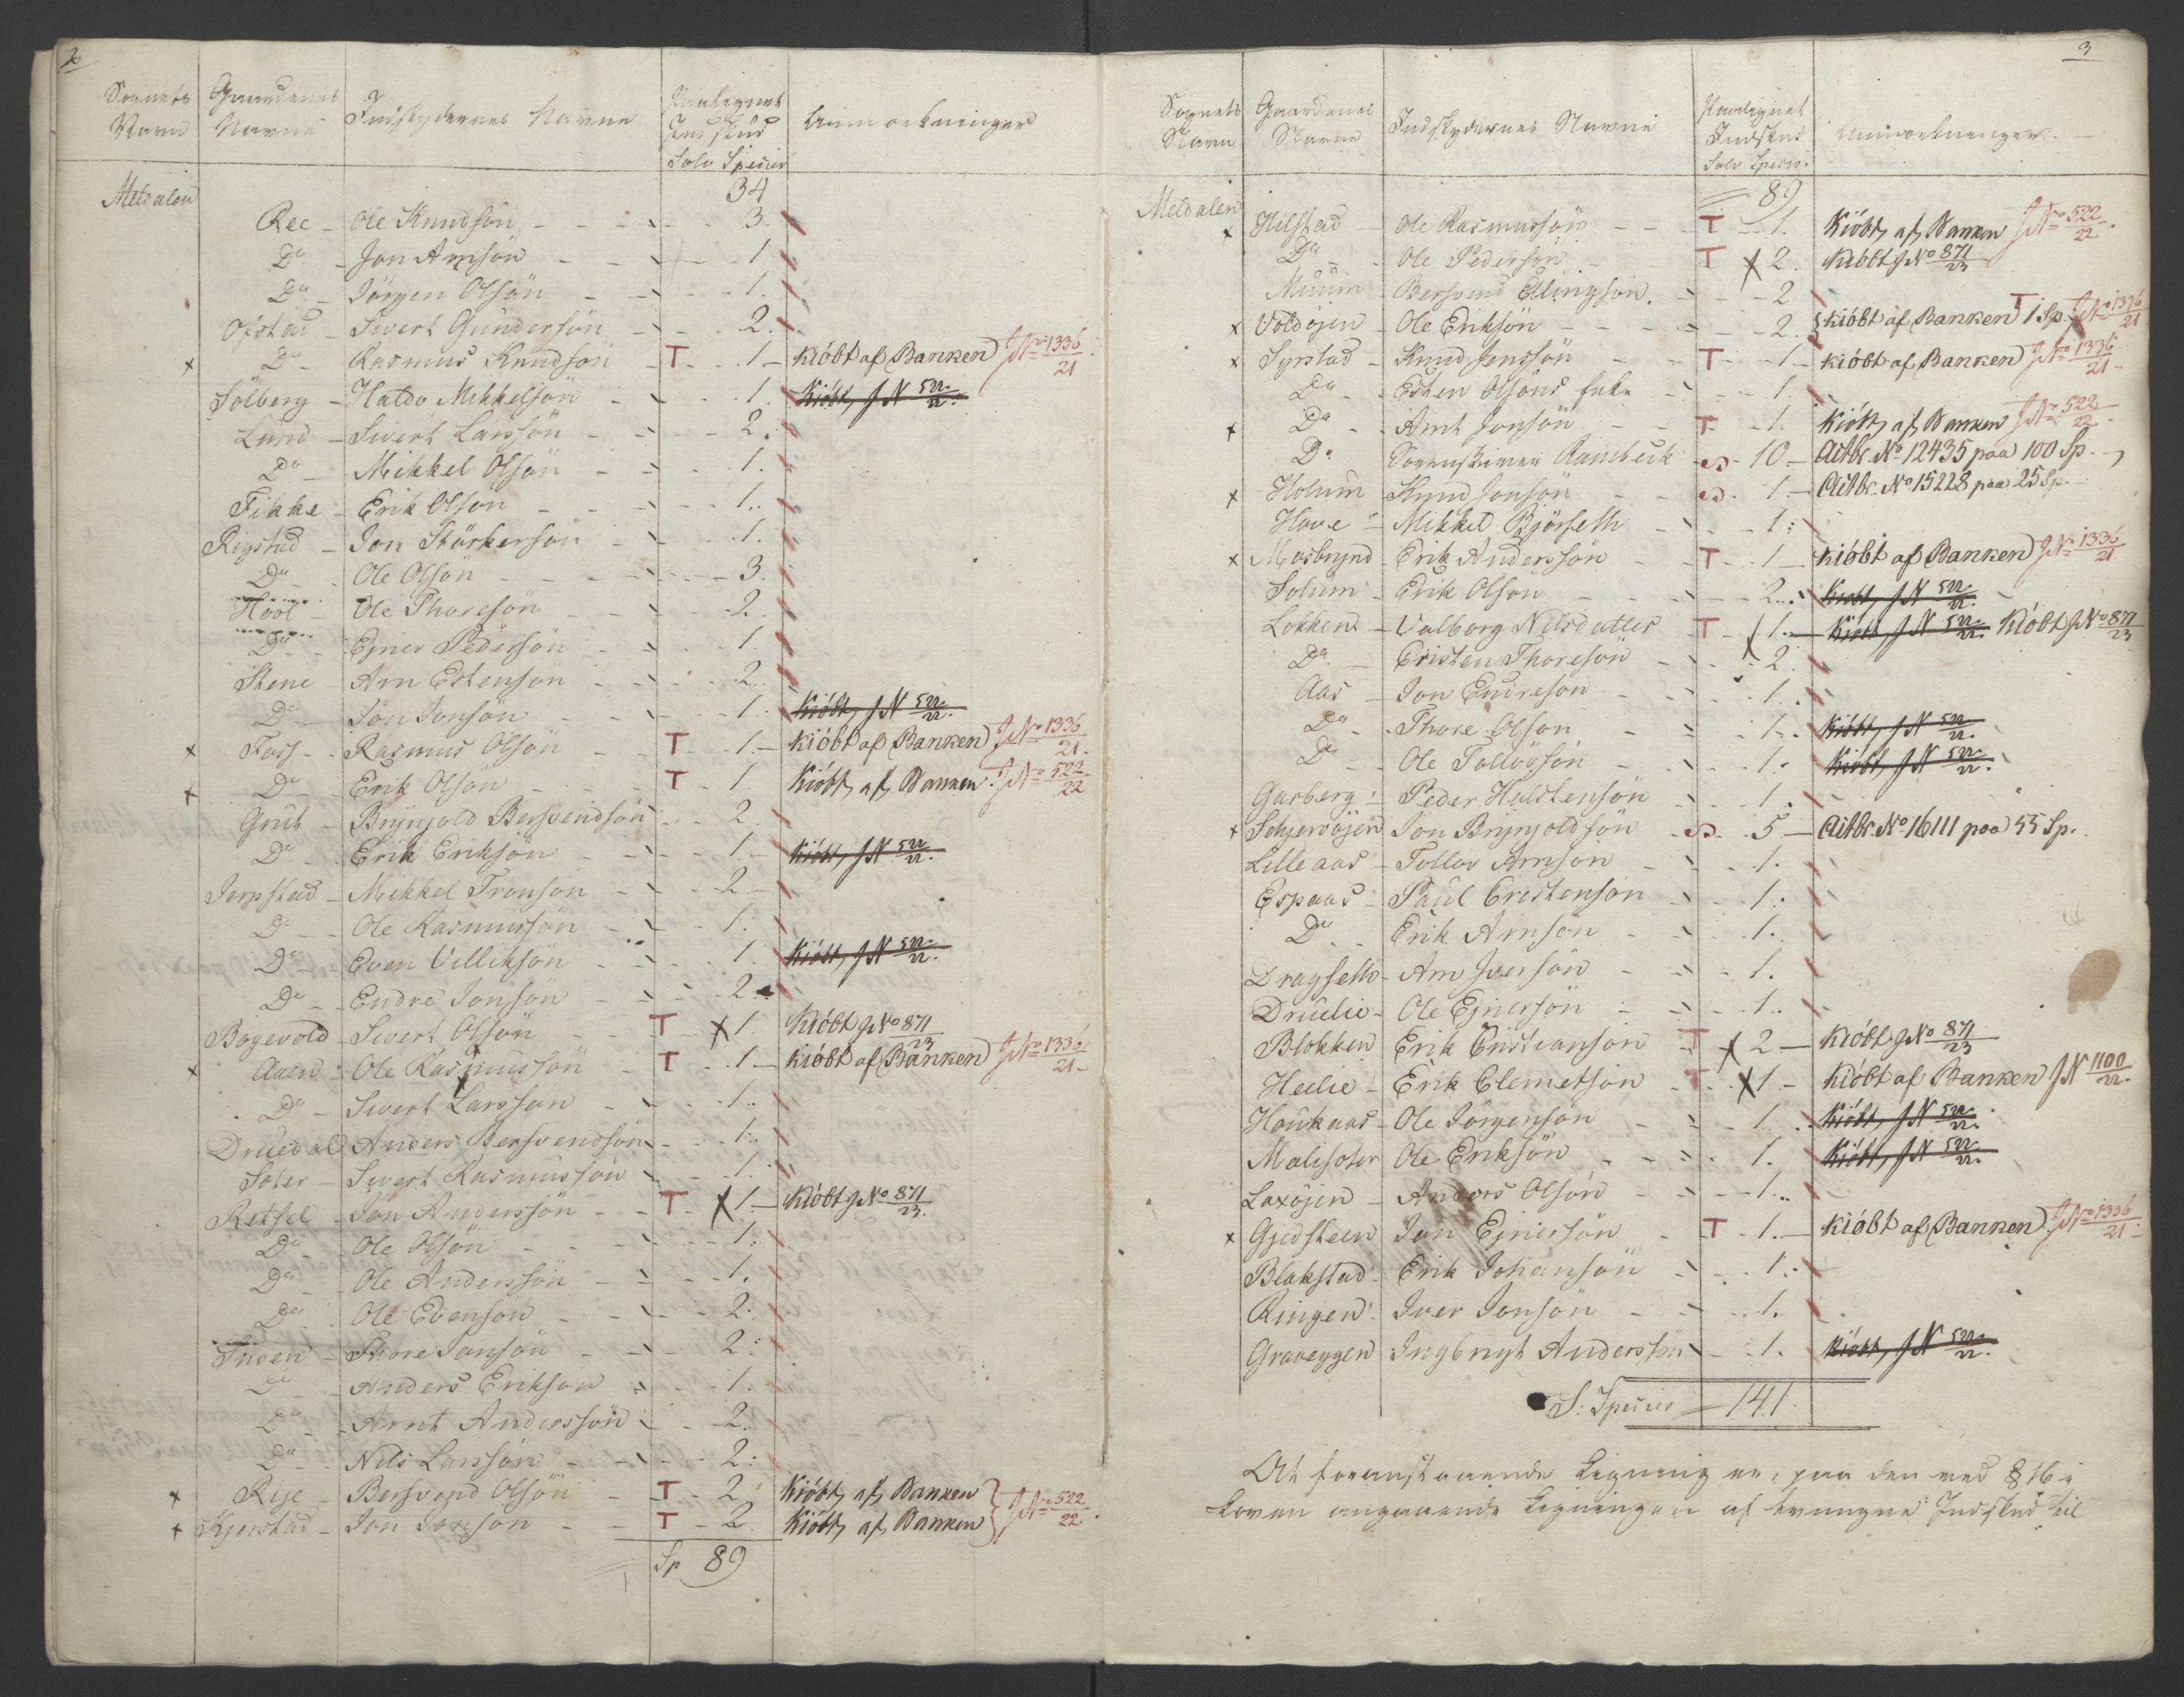 2
Sognets Navn | Gaardenes Navne | Indskydernes Navne | Paalignet Indskud Sølv Specier | Anmærkninger
Meldalen 34
Ree - Ole Knudsön - 3.
Do - Jon Arnsön - 1
Do - Jörgen Olsön - 1.
Ofstad - Sivert Gundersön - 2.
x Do - Rasmus Knudsön - T - 1 - Kiöbt af Banken JNo 1336/21
Solberg - Haldo Mikkelsön - 1. Kiöbt, JN 522/22.
Lund - Sivert Larssön - 2.
Do - Mikkel Olsön - 1.
Fikke - Erik Olsön - 1.
Rigstad - Jon Störkersön - 1.
Do - Ole Olsön - 3.
Hool - Ole Thoresön - 2.
Do - Ejner Pedersön - 1.
Stene - Arn Estensön - 2.
Do - Jon Jonsön - 1. Kiöbt, JN 522/22.
x Foss - Rasmus Olsön - T - 1 - Kiöbt af Banken JNo 1336/21.
x Do - Erik Olsön - T - 1. Kiöbt af Banken. JNo 522/22
Grut - Brynjold Bersvendsön - 2.
Do - Erik Eriksön - 1. Kiöbt, JN 522/22.
Jerpstad - Mikkel Tronsön - 2
Do - Ole Rasmussön - 1.
Do - Even Villiksön - 1. Kiöbt, JN 522/22.
Do - Endre Jonsön - 2.
Bogevold - Sivert Olsön - T x 1. Kiöbt JNo 871/23
x Aaen - Ole Rasmussön - T - 1 - Kiöbt af Banken JNo 1336/21
Do - Sivert Larsson - 1.
Druedal - Anders Bersvendsön - 1.
Soter - Sivert Rasmussön - 1.
Retsel - Jon Anderssön - T x 1 - Kiöbt JNo 871/23.
Do - Ole Olsön - 1.
Do - Ole Anderssön - 1.
Do - Ole Evensön - 2.
Thoen - Thore Jonsön - 2.
Do - Anders Eriksön - 1.
Do - Arnt Anderssön - 2.
Do - Nils Larssön - 2.
x Rise - Bersvend Olsön - T - 2 Kiöbt af Banken
x Kjerstad - Jon Jonsön - T - 2. Kiöbt af Banken } JNo 522/22.
Sp 89
3
Sognets Navn | Gaardenes Navne | Indskydernes Navne | Paalignet Indskud Sølv Specier | Anmærkninger
Meldalen 89
x Hilstad - Ole Rasmussön - T - 1. Kiöbt af Banken JNo 522/22.
Do - Ole Pedersön - T x 2. Kiöbt JNo 871/23
Muum - Bersvend Ellingsön. - 2
x Voldöjen - Ole Eriksön - 2. Kiöbt af Banken T 1 Sp. JNo 1336/21
x Syrstad - Knud Jonssön - T - 1 - Kiöbt af Banken JNo 1336/21
Do - Esten Olsöns Enke - 1.
x Do - Arnt Jonsön - T - 1. Kiöbt af Banken JNo 522/22
Do - Sorenskriver Rambeck - 10 - Actbr. No 12435 paa 100 Sp.
x Holum - Knud Jonsön - 1 - Actbr. No 15228 paa 25 Sp.
Hove - Mikkel Björseth - 1.
x Mosbrynd - Erik Anderssön - T - 1 - Kiöbt af Banken JNo 1336/21
Solum - Erik Olsön - 2. Kiöbt, JN 522/22.
Løkken - Valborg Nilsdatter - T - 1. Kiöbt, JN 522/22. Kiöbt JNo 871/23
Do - Cristen Thoresön - x 2.
Aas - Jon Endresön - 1.
Do - Thore Olson - 1. Kiöbt, JN 522/22.
Do - Ole Tollövsön - 1. Kiöbt, JN 522/22.
Garberg - Peder Halstensön - 1.
x Schjervöjen - Jon Brynjoldsön - 5 - Actbr. No 16111 paa 55 Sp.
Lilleaas - Tollov Arnsön - 1.
Espaas - Paul Cristensön - 1.
Do - Erik Arnsön - 1.
Dragseth - Arn Iversön - 1.
Druelie - Ole Ejnersön - 1.
Blokken - Erik Cristiansön - T x 2 - Kiöbt JNo 871/23
Heelie - Erik Clemetsön - T x 1 - Kiöbt af Banken JN 1100/22.
Haukaas - Ole Jörgensön - 1. Kiöbt, JN 522/22.
Malisoter - Ole Eriksön - 1. Kiöbt, JN 522/22.
Laxöjen - Anders Olsön - 1.
x Gjedsteen - Jon Ejnersön - T - 1. - Kiöbt af Banken. JNo 1336/21
Blokstad - Erik Johansön - 1.
Ringen - Iver Jonsön - 1.
Graveggen - Ingbrigt Anderssön - 1. Kiöbt, JN 522/22.
S. Specier - 141.
At foranstaaende Ligning er, paa den ved § 16 i
Loven angaaende Ligningen af tvungne Indskud til